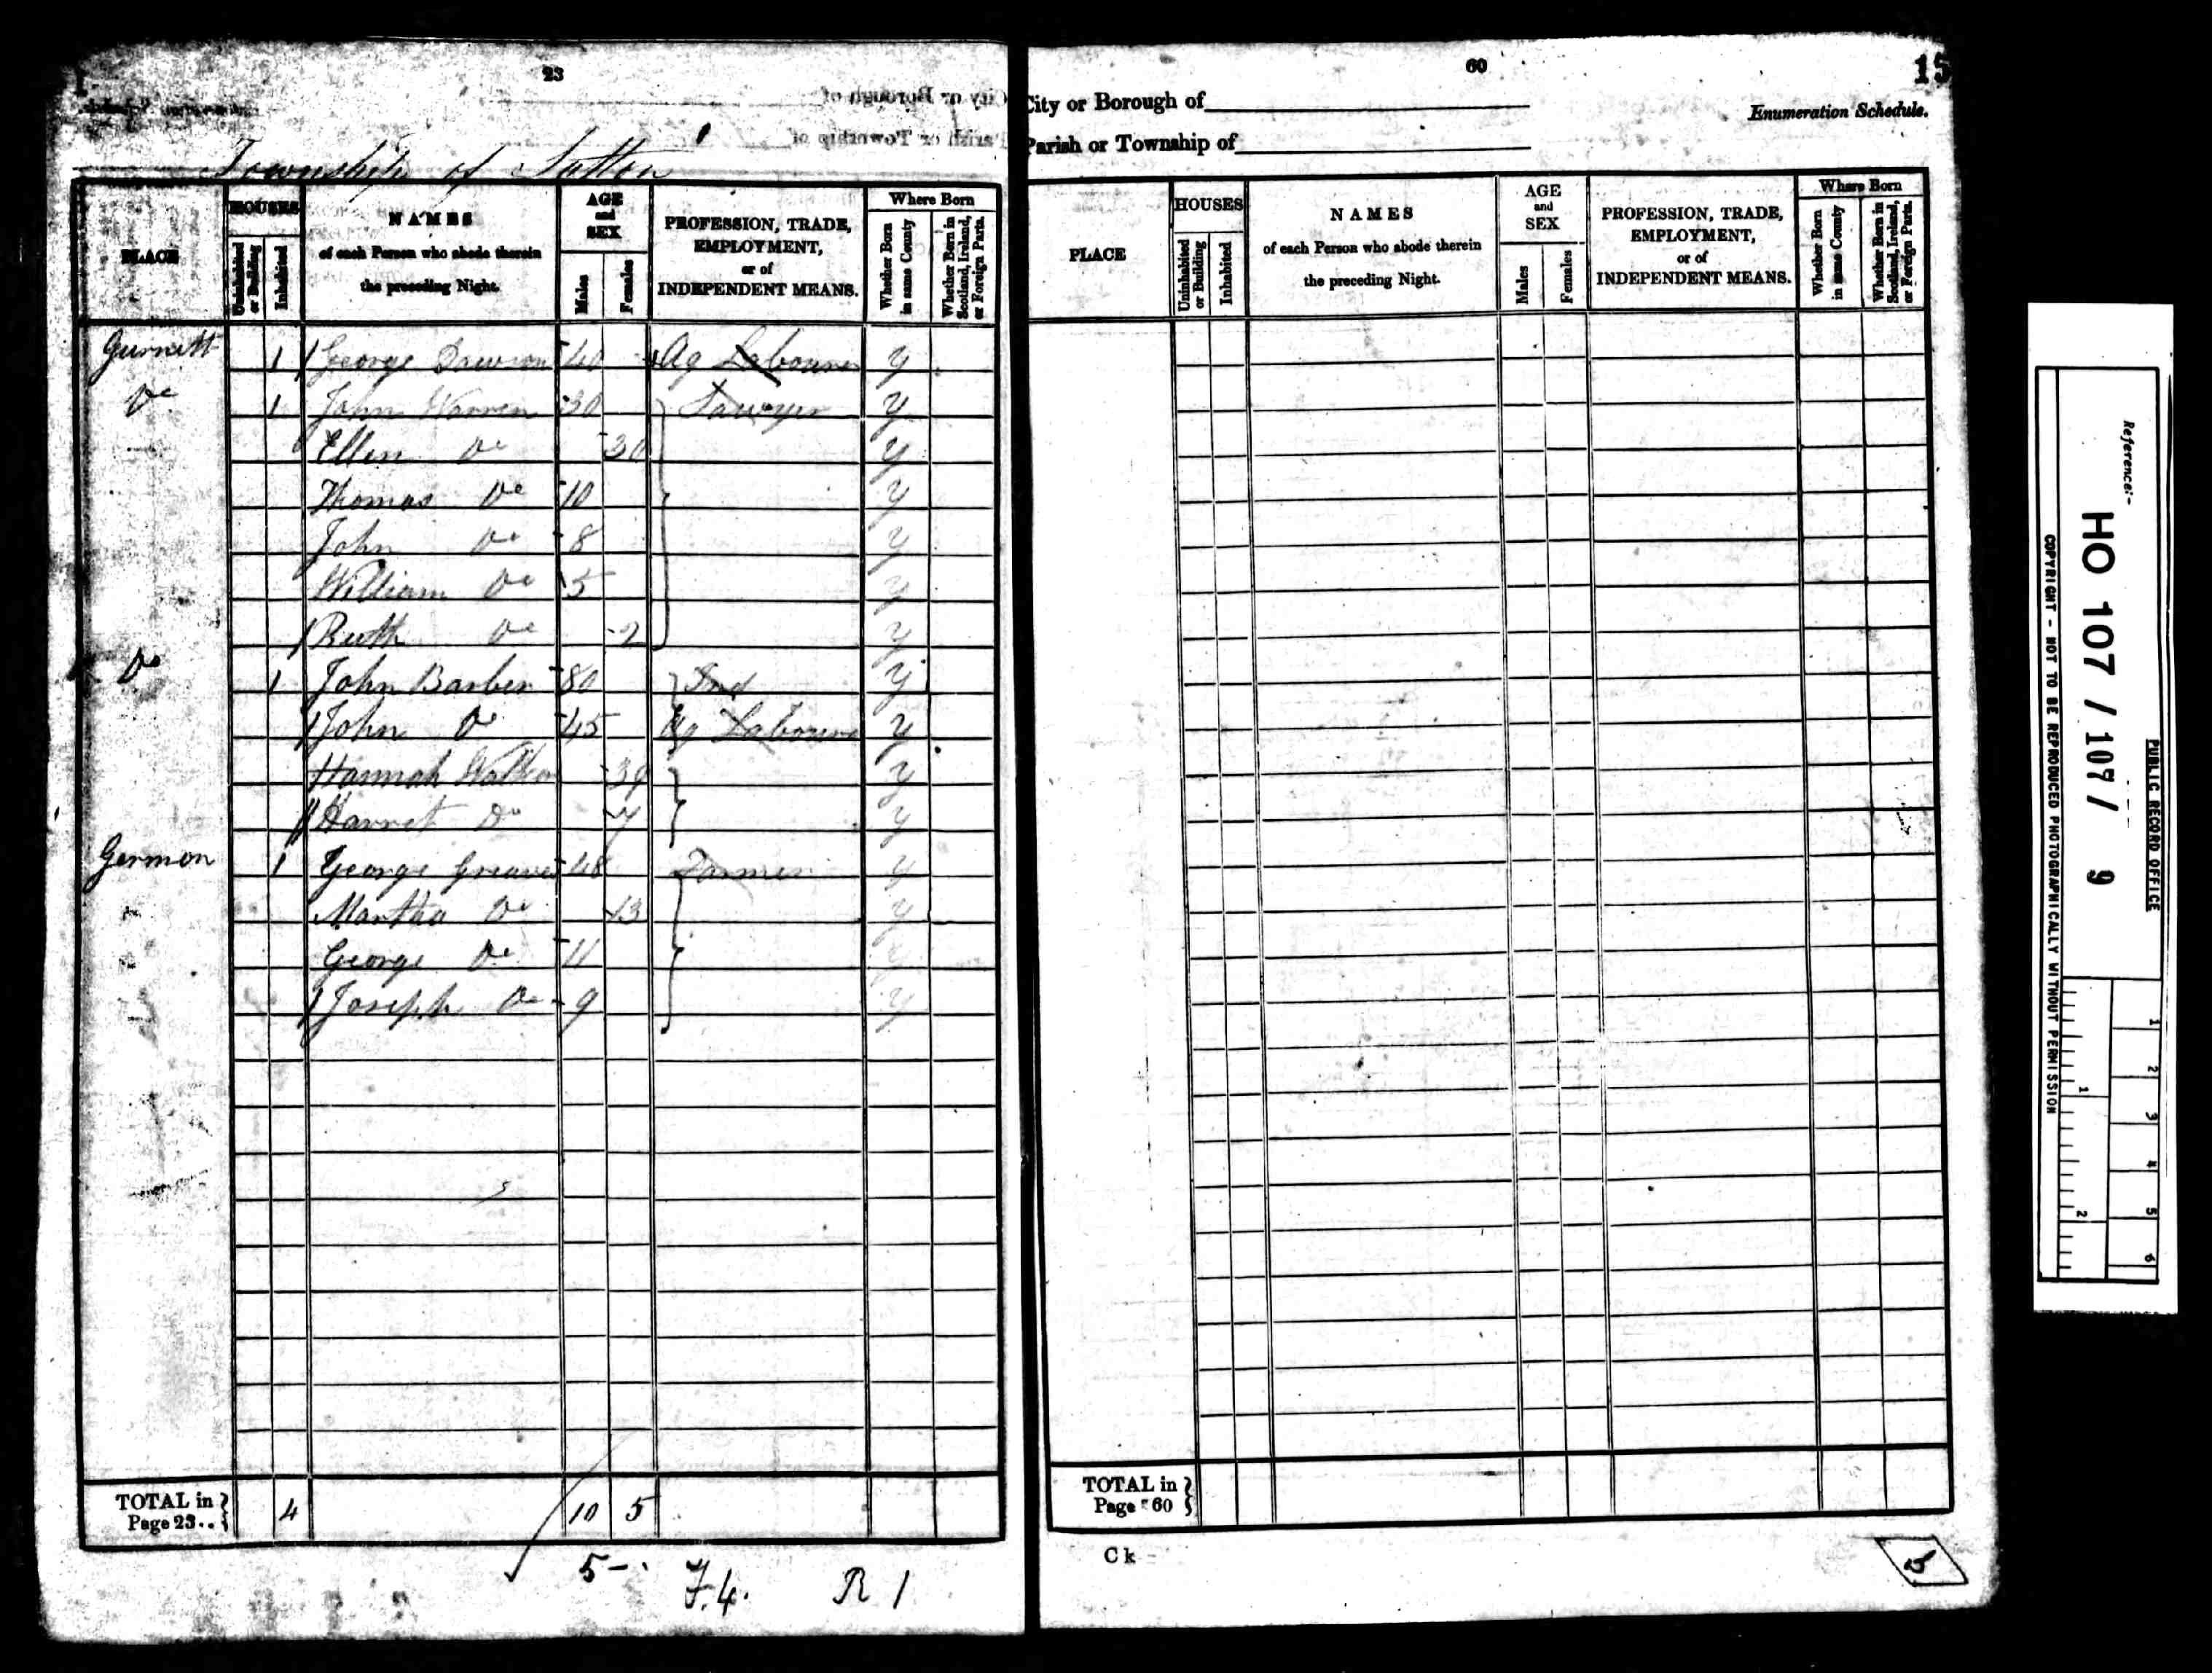 23
Township of Sutton
PLACE
HOUSES
Uninhabited or Building
Inhabited
NAMES
of each Person who abode therein
the preceding Night.
AGE
and
SEX
Males
Females
PROFESSION, TRADE,
EMPLOYMENT,
or of
INDEPENDENT MEANS.
Where Born
Whether Born in same County
Whether Born in Scotland, Ireland, or Foreign Parts.
Gurnett 1 George Dawson 40 Ag Labourer y
Do 1 John Warren 30 Sawyer y
Ellen Do 30 y
Thomas Do 10 y
John Do 8 y
William Do 5 y
Ruth Do 2 y
Do 1 John Barber 80 Ind y
John Do 45 Ag Labourer y
Hannah y
Harriet Do y
Germon 1 George Greaves 48 Farmer y
Martha Do 13 y
George Do 11 y
Joseph Do 9 y
TOTAL in
Page 23..
4 10 5
5 F.4. R 1
60
15
City or Borough of
Parish or Township of
Enumeration Schedule.
PLACE
HOUSES
Uninhabited or Building
Inhabited
NAMES
of each Person who abode therein
the preceding Night.
AGE
and
SEX
Males
Females
PROFESSION, TRADE,
EMPLOYMENT,
or of
INDEPENDENT MEANS.
Where Born
Whether Born in same County
Whether Born in Scotland, Ireland, or Foreign Parts.
TOTAL in
Page 60
Ck
PUBLIC RECORD OFFICE
Reference:-
HO 107 / 107 / 9
COPYRIGHT - NOT TO BE REPRODUCED PHOTOGRAPHICALLY WITHOUT PERMISSION
1 2 3 4 5 6
1 2